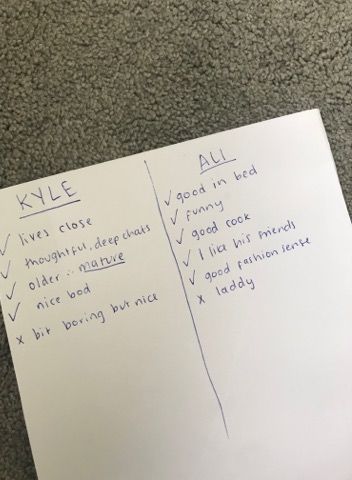 KYLE
✓ lives close
✓ thoughtful, deep chats
✓ older ∴ mature
✓ nice bod
x bit boring but nice
ALI
✓ good in bed
✓ funny
✓ good cook
✓ I like his friends
✓ good fashion sense
x laddy